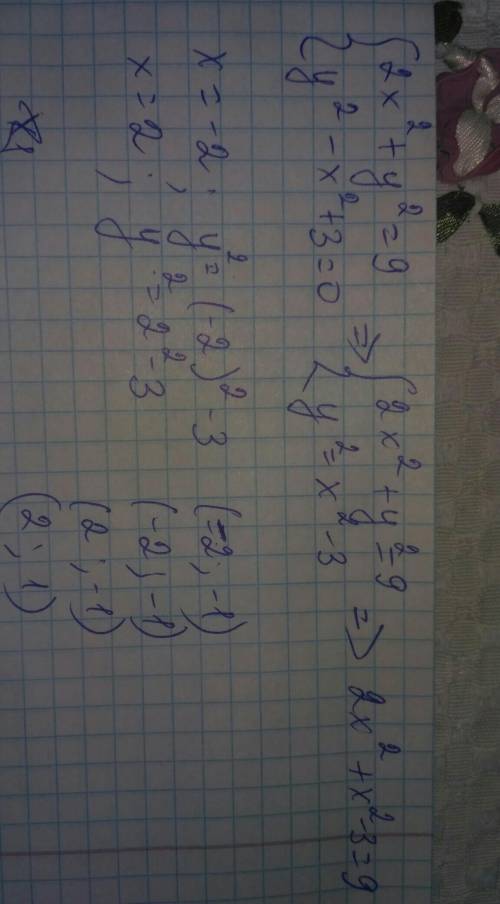 {2x² + y² = 9
{y² - x² + 3 = 0 => {2x² + y² = 9
{y² = x² - 3 => 2x² + x² - 3 = 9
x = -2; y² = (-2)² - 3
x = 2; y² = 2² - 3
(-2; -1)
(-2; -1)
(2; -1)
(2; 1)